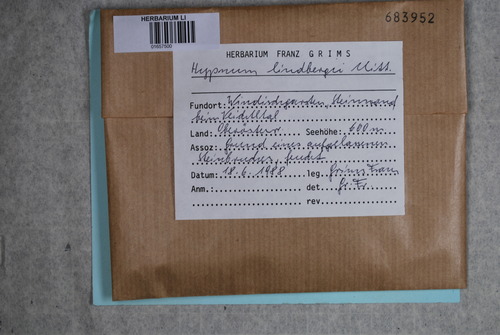 HERBARIUM LI
683952
HERBARIUM FRANZ GRIMS
Hypnum lindbergii Mitt.
Fundort: Windischgarsten,
beim
Land: Oberösterr. Seehöhe: 600 m
Assoz: Grund eines aufgelassenen
Steinbruches, feucht
Datum: 18.6.1988 leg. Grims Franz
Anm.: det. Gr. Fr.
rev.